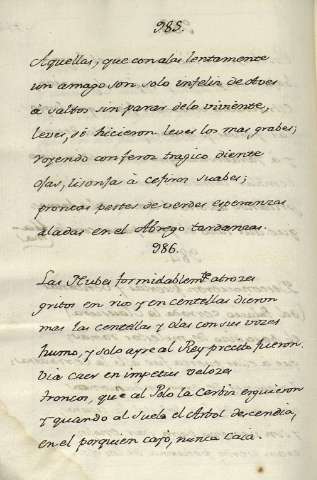 985.
Aquellas; que con alas lentamente
un amago son solo infeliz de Aves
à saltos sin parar de lo viviente,
leves, sè hicieron leves los mas grabes;
royendo con feros tragico diente
ojas, lisonja à cefiros suabes;
prontas pestes de verdes esperanzas
aladas en el Abrego tardanzas.
986.
Las Nubes formidablemte atrozes
gritos en rio y en centellas dieron
mas las centellas y olas con sus vozes
humo, y solo ayre al Rey precito fueron.
Via caer en impetus velozes
troncos, que al Polo la Cerbiz erguieron
y quando al Suelo el Arbol descendia,
en el por quien cayò, nunca caia.